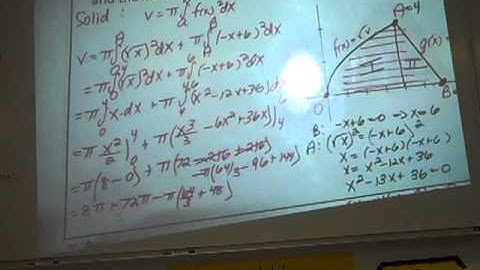 Solid : V = π∫ f(x)²dx
V = π∫(√x)²dx + π∫(-x+6)²dx
= π∫₀⁴(√x)²dx + π∫₄⁶(-x+6)²dx
= π∫₀⁴ x.dx + π∫₄⁶(x²-12x+36)dx
= π x²/2 ]₀⁴ + π(x³/3 - 6x² + 36x)]₄⁶
= π(8-0) + π(72 - 216 + 216)
- π(64/3 - 96 + 144)
= 8π + 72π - π(64/3 + 48)
A=4
f(x)=√x
g(x)=
I
O
B=
B: -x+6=0 -> x=6
A: (√x)² = (-x+6)²
x = (-x+6)(-x+6)
x = x²-12x+36
x²-13x+36=0